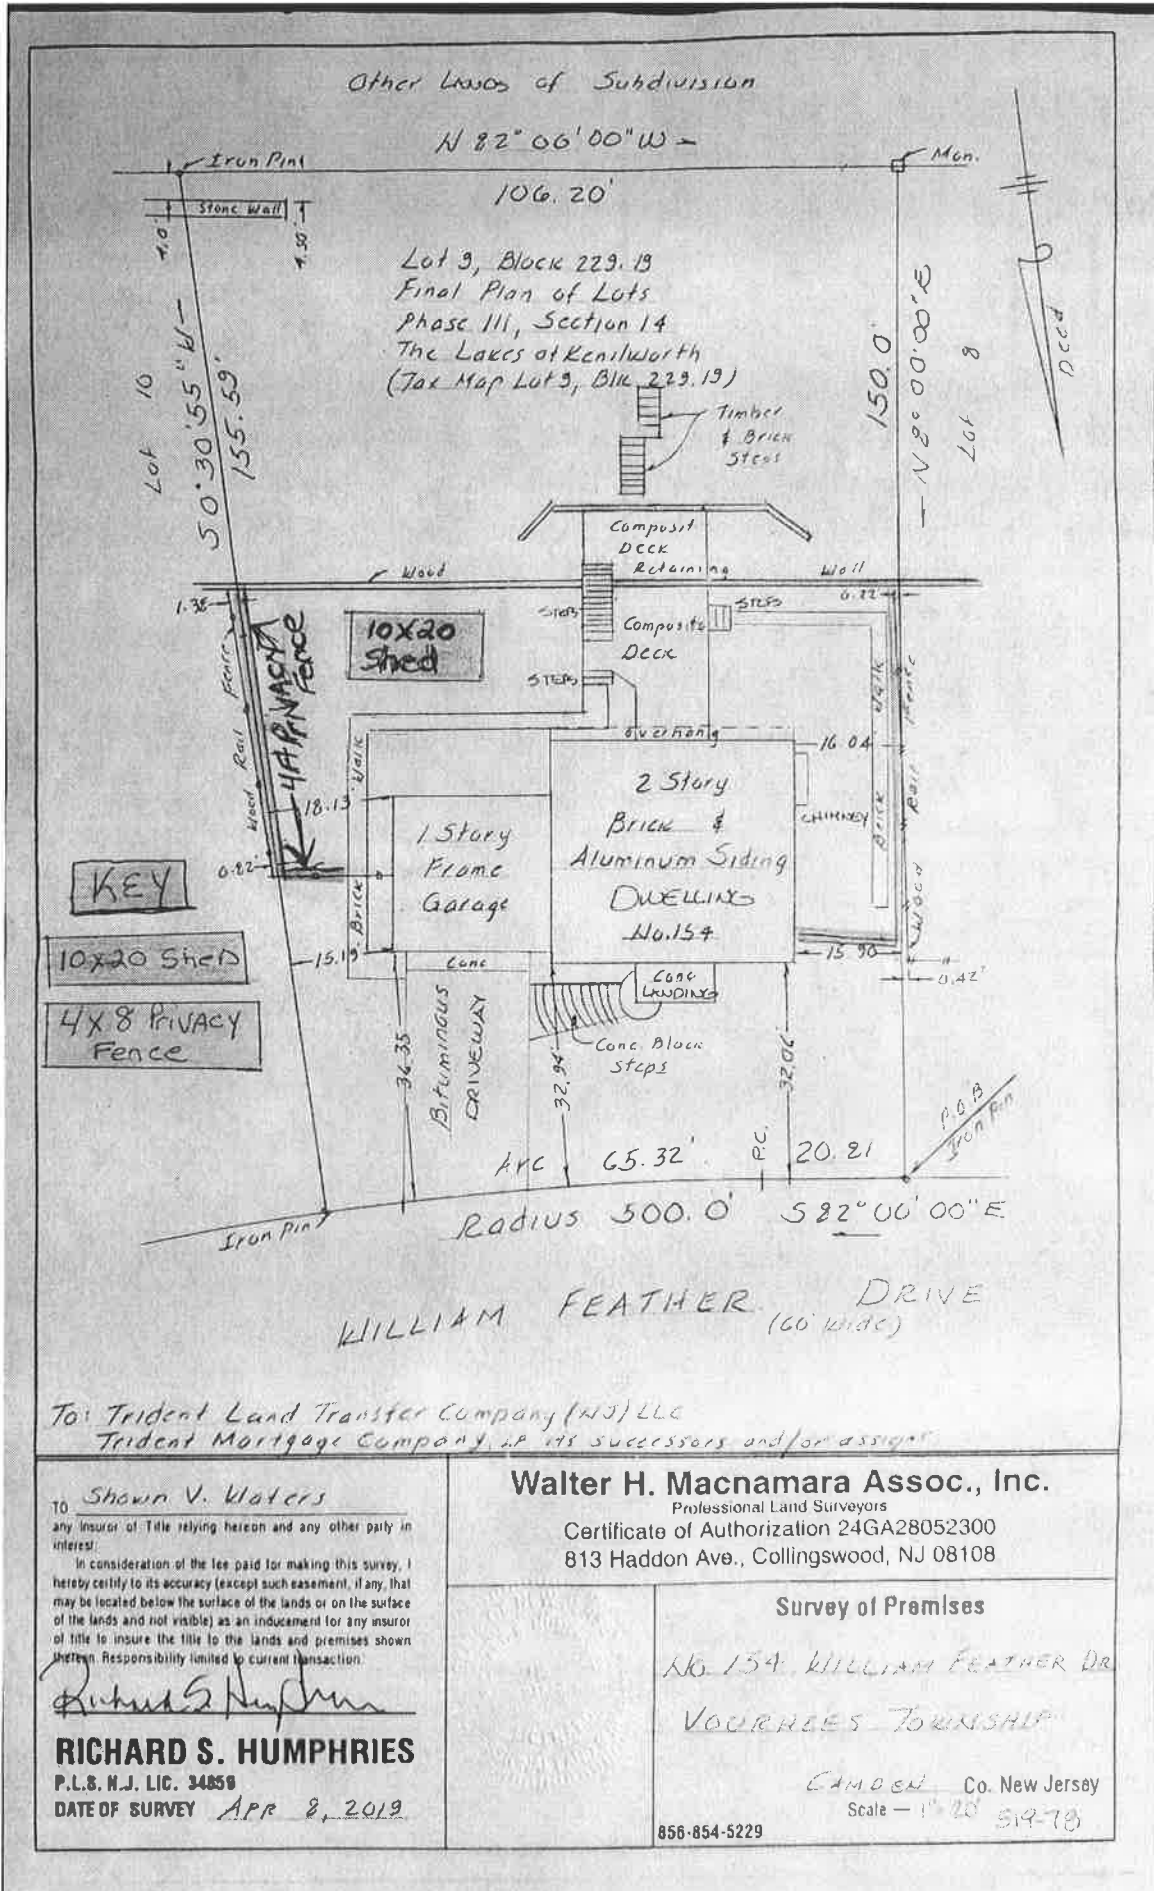 Other Lands of Subdivision
N 82° 06' 00" W
Iron Pin
Mon.
106.20'
Stone Wall
4.0'
4.50'
Lot 9, Block 229.19
Final Plan of Lots
Phase III, Section 14
The Lakes at Kenilworth
(Tax Map Lot 9, Blk. 229.19)
Lot 10
S 0° 30' 55" W
155.59'
150.0'
N 8° 00' 00" E
Lot 8
Deed
Timber
& Brick
Steps
Composit
Deck
Retaining
Wood
Wall
1.38
0.22
10X20
Shed
Steps
Composite
Deck
Steps
Steps
Wood Rail Fence
4ft Privacy
Fence
Brick Walk
Wood Rail Fence
overhang
16.04
18.13
Walk
Brick
1 Story
Frame
Garage
2 Story
Brick &
Aluminum Siding
DWELLING
No. 154
CHIMNEY
0.82
KEY
10x20 Shed
4 X 8 Privacy
Fence
15.19
15.90
0.42'
Conc
Conc
LANDING
Bituminous
DRIVEWAY
Conc. Block
Steps
36.35
32.94
32.06
P.O.B
Iron Pin
Arc 65.32'
P.C.
20.21
Radius 500.0'
S 82° 00' 00" E
Iron Pin
WILLIAM FEATHER DRIVE
(60' wide)
To: Trident Land Transfer Company (NJ) LLC
Trident Mortgage Company, LP its successors and/or assigns
TO Shawn V. Waters
any Insuror of Title relying hereon and any other party in
interest:
In consideration of the fee paid for making this survey, I
hereby certify to its accuracy (except such easement, if any, that
may be located below the surface of the lands or on the surface
of the lands and not visible) as an inducement for any insuror
of title to insure the title to the lands and premises shown
thereon. Responsibility limited to current transaction.
Richard S Humphries
RICHARD S. HUMPHRIES
P.L.S. N.J. LIC. 34859
DATE OF SURVEY APR 8, 2019
Walter H. Macnamara Assoc., Inc.
Professional Land Surveyors
Certificate of Authorization 24GA28052300
813 Haddon Ave., Collingswood, NJ 08108
Survey of Premises
No. 154 WILLIAM FEATHER DR
VOORHEES TOWNSHIP
CAMDEN Co. New Jersey
Scale — 1" 20'
519-78
856-854-5229